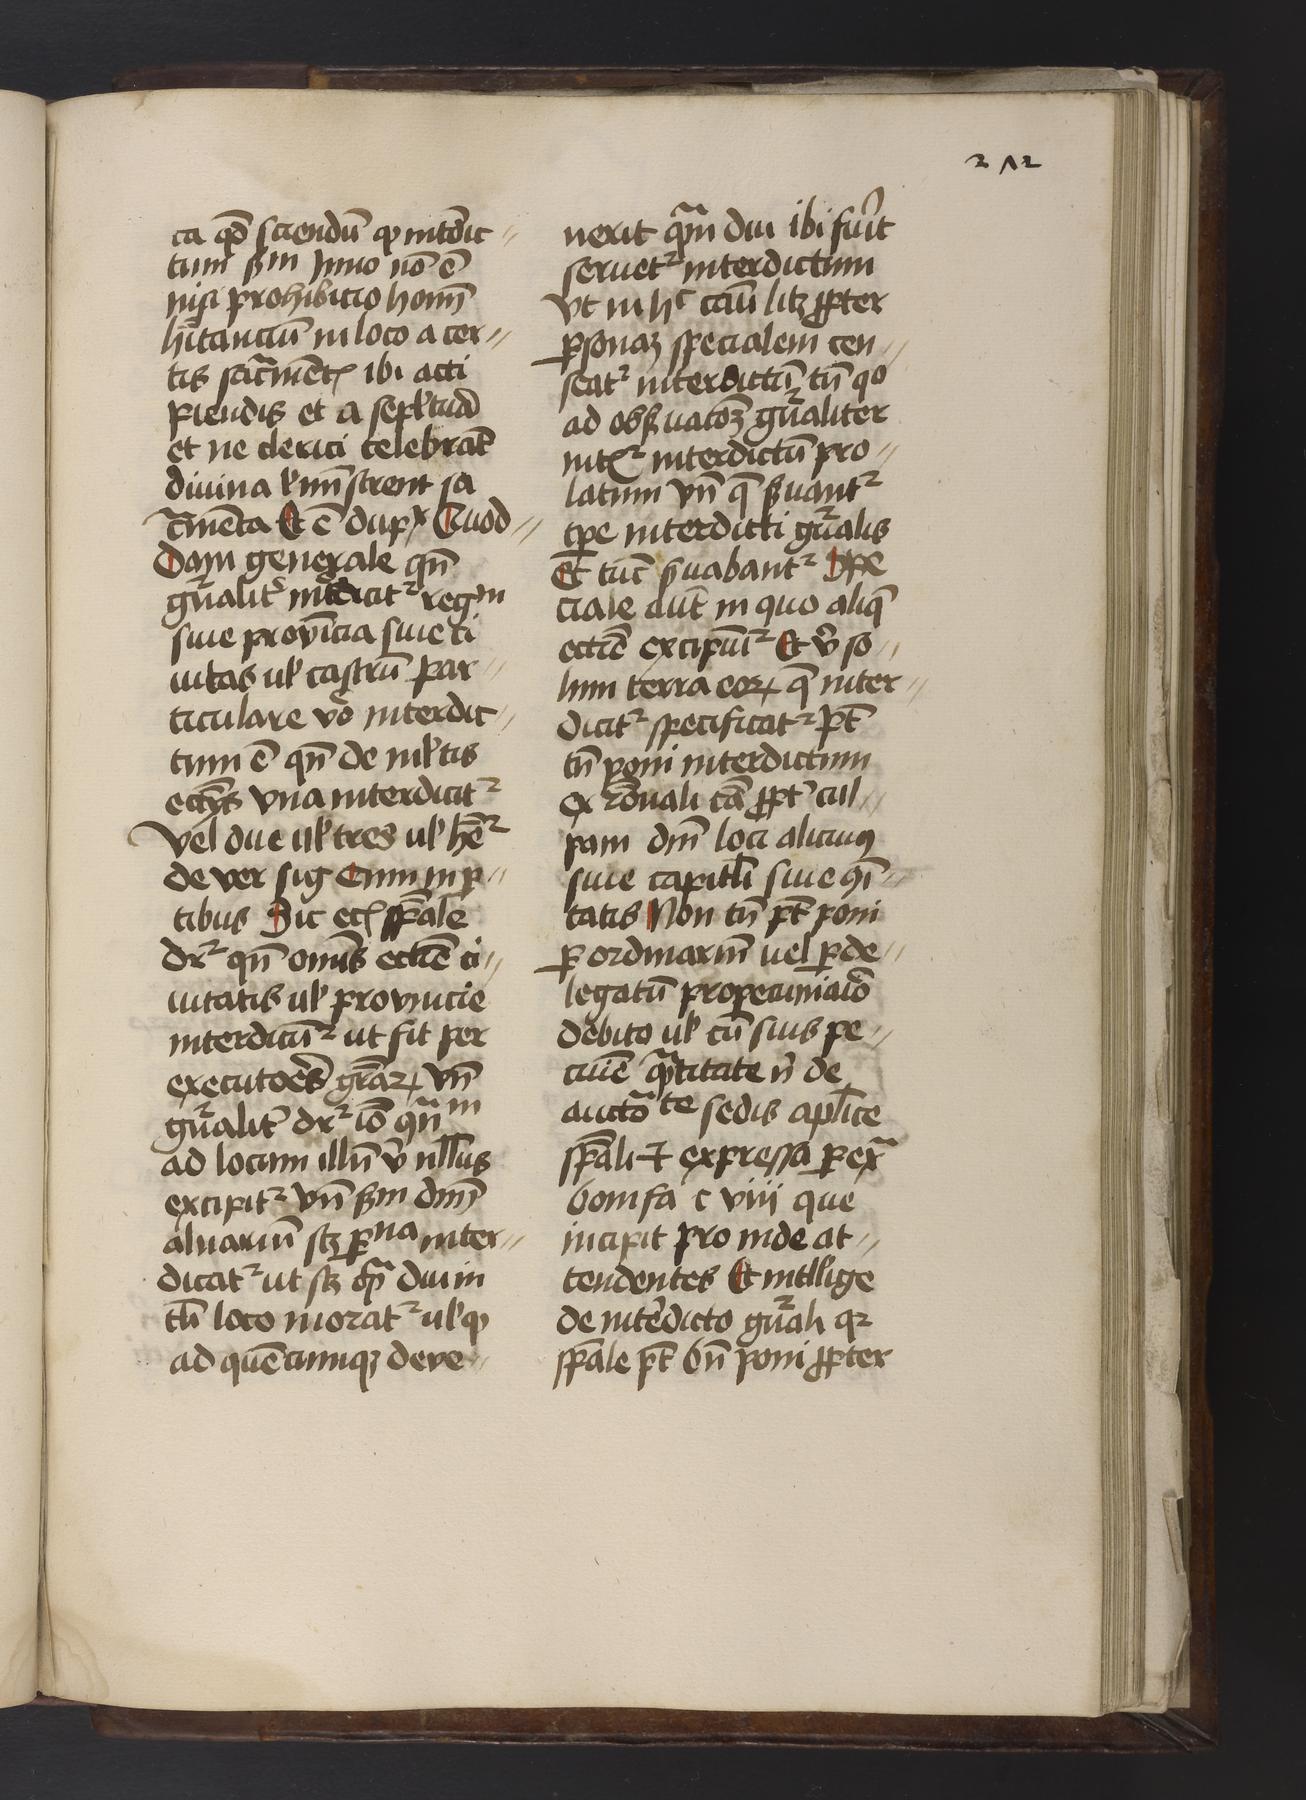 272
ca qd̄ sciendū ꝙ int̄dic-
tum sm̄ Inno nō ē
nisi prohibicio homī
hītanciū in loco a cer-
tis sacͣmēt ibi acti
piendis et a sepl̄tuͣ
et ne clerici celebrāt
diuina ł mīstrent sa
cͣmēta Et ē dupˣ Quod-
Dam generale qn̄
gn̄alit᷑ int̄dicit² regͫ
siue prouīcia siue ci
uitas uł castrū par-
ticulare vo̊ interdic-
tum ē qn̄ de mł̄tis
ecc̄ijs vna interdicit²
vel due uł tres uł hē²
de ver sig Cum in ꝑ-
tibus Sic eccł sp̄ale
dr² qn̄ om̄s eccīe ci-
uitatis uł prouincie
interdicūt² ut fit per
executōes gr̄aꝝ vn̄
gn̄alit᷑ dr² iō qn̄ in
ad locum illū v̊ nllus
excipit² vn̄ sm̄ dm̄
aluariū scꝫ ꝑ una inter-
dicat² ut scꝫ qͣ diu in
tli loco morat² uł ꝙ
ad quēcumqꝫ deve-
nerit qͣm diu ibi fuīt
seruet² interdictum
vt in hͨ cāu licꝫ ꝓpter
ꝑsonaꝫ specialem cen-
seat² interdictū tn̄ qo
ad obẜuacōꝫ gn̄aliter
interdictū pro-
latum vn̄ q̄ ẜuant²
tp̄e interdicti gn̄alis
Et tūc ẜuabant² Spe
ciale aūt in quo aliq̄
eccīe excipiūt² Et v̊ so-
lum terra eoꝝ q̄ inter-
dicit² specificat² pt̄
tn̄ poni interdictum
ex rōnali cā ꝓpt᷑ cul-
pam dm̄ loci alicuiꝯ
siue capitl̄i siue ꝯī-
tatis Non tn̄ pt̄ poni
ꝑ ordinariū uel ꝑ de-
legatū pro pecuniaio̊
debito uł cū suis pe-
cuīe qͣtitate n̄ de
auctoͣte sedis aplīce
sp̄ali ⁊ expressa ꝑ exͣ
bonifa c viij que
incipit pro inde at-
tendentes Et intll̄ige
de int̄dicto gn̄ali qꝛ
sp̄ale pt̄ bn̄ poni ꝓpter